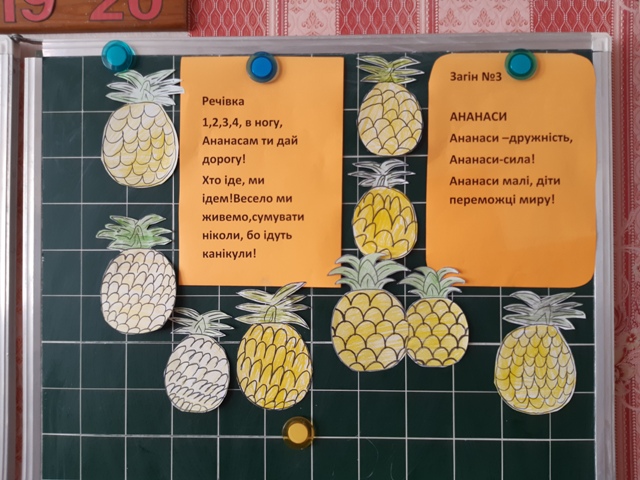 19 20
Речівка
1,2,3,4, в ногу,
Ананасам ти дай
дорогу!
Хто іде, ми
ідем!Весело ми
живемо,сумувати
ніколи, бо ідуть
канікули!
Загін №3
АНАНАСИ
Ананаси –дружність,
Ананаси-сила!
Ананаси малі, діти
переможці миру!